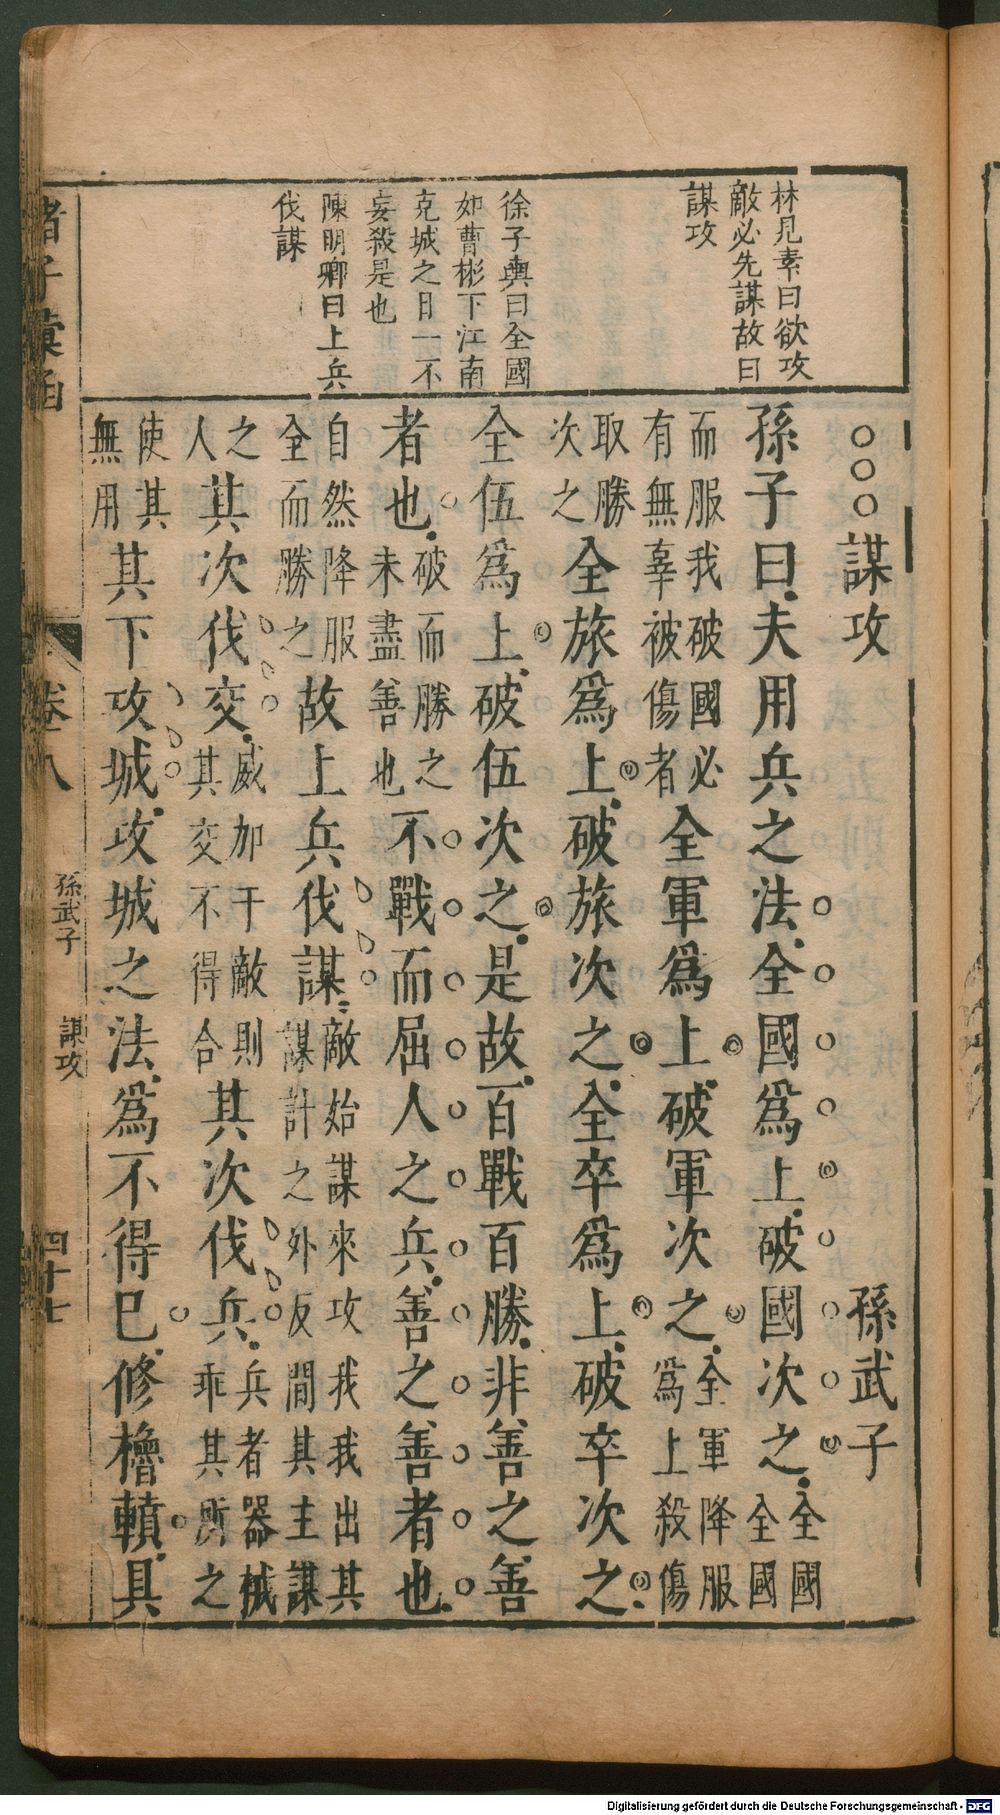 林見素曰欲攻
敵必先謀故曰
謀攻
徐子輿曰全國
如曹彬下江南
克城之日一不
妄殺是也
陳明卿曰上兵
伐謀
○○○謀攻 孫武子
孫子曰夫用兵之法全國爲上破國次之全國全國
而服我破國必有無辜被傷者全軍爲上破軍次之全軍降服爲上殺傷
取勝次之全旅爲上破旅次之全卒爲上破卒次之
全伍爲上破伍次之是故百戰百勝非善之善
者也破而勝之未盡善也不戰而屈人之兵善之善者也
自然降服全而勝之故上兵伐謀敵始謀來攻我我出其謀計之外反間其主謀
之人其次伐交威加于敵則其交不得合其次伐兵兵者器械乖其所之
使其無用其下攻城攻城之法爲不得已修櫓轒具
諸子彙函
卷八
孫武子
謀攻
四十七
Digitalisierung gefördert durch die Deutsche Forschungsgemeinschaft - DFG